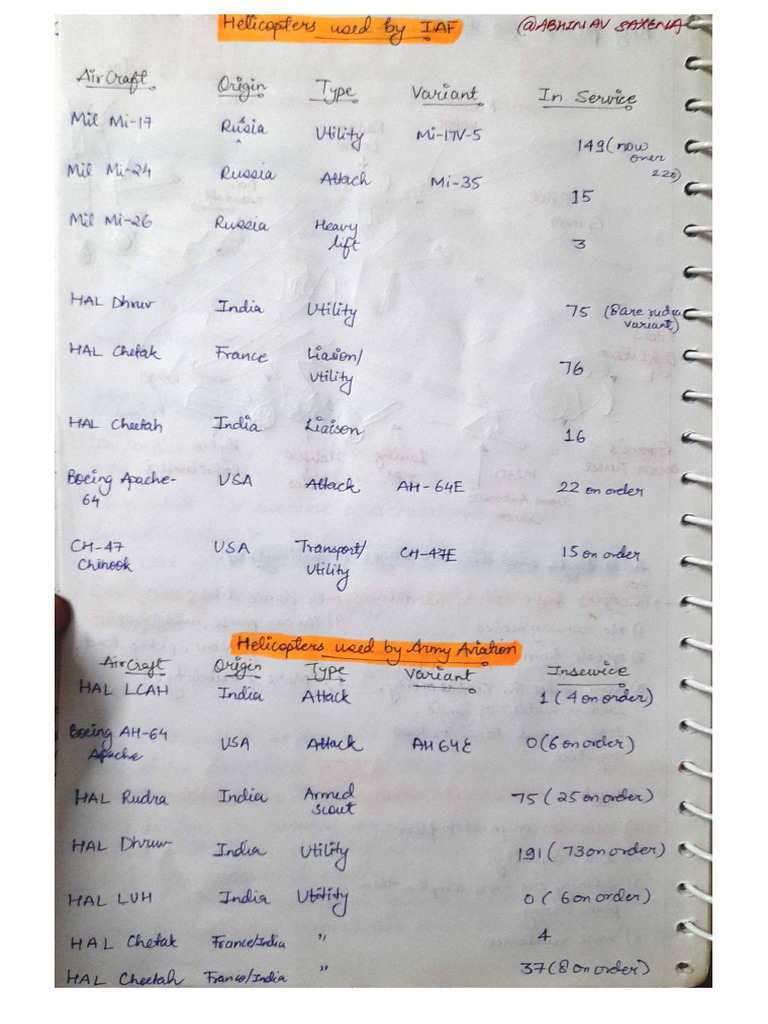 Helicopters used by IAF @ABHINAV SAXENA
AirCraft Origin Type Variant In Service
Mil Mi-17 Russia Utility Mi-17V-5 149 (now over 220)
Mil Mi-24 Russia Attack Mi-35 15
Mil Mi-26 Russia Heavy lift 3
HAL Dhruv India Utility 75 (8 are rudra variant)
HAL Chetak France Liasion/ Utility 76
HAL Cheetah India Liaison 16
Boeing Apache-64 USA Attack AH-64E 22 on order
CH-47 Chinook USA Transport/ Utility CH-47E 15 on order
Helicopters used by Army Aviation
AirCraft Origin Type Variant Inservice
HAL LCAH India Attack 1 (4 on order)
Boeing AH-64 Apache USA Attack AH 64E 0 (6 on order)
HAL Rudra India Armed scout 75 (25 on order)
HAL Dhruv India Utility 191 (73 on order)
HAL LUH India Utility 0 (6 on order)
HAL Chetak France/India " 4
HAL Cheetah France/India " 37 (8 on order)